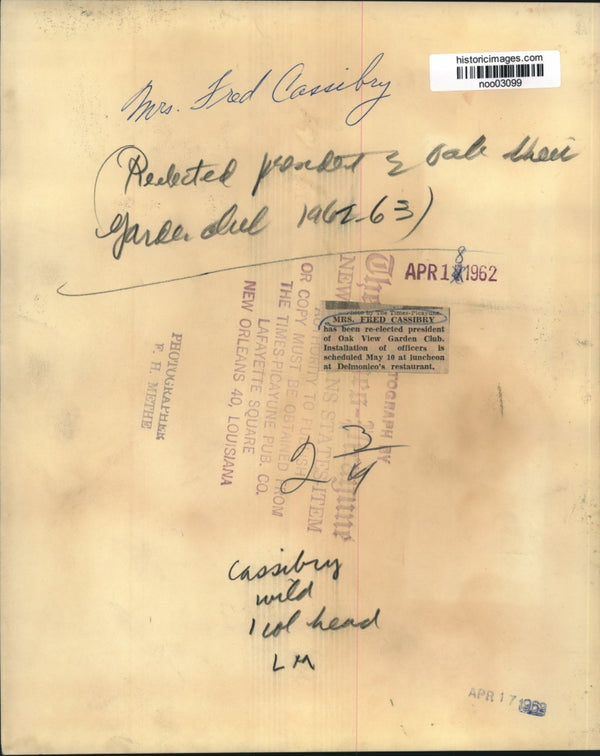 historicimages.com
noo03099
Mrs. Fred Cassibry
(Reelected president
Garden club 1962-63)
APR 18 1962
Photo by The Times-Picayune.
MRS. FRED CASSIBRY
has been re-elected president
of Oak View Garden Club.
Installation of officers is
scheduled May 10 at luncheon
at Delmonico's restaurant.
PHOTOGRAPH BY
The
NEW STATES ITEM
OR COPY MUST BE OBTAINED FROM
THE TIMES-PICAYUNE PUB. CO.
LAFAYETTE SQUARE
NEW ORLEANS 40, LOUISIANA
PHOTOGRAPHER
F. H. METHE
2 3/4
Cassibry
wild
1 col head
LM
APR 17 1962